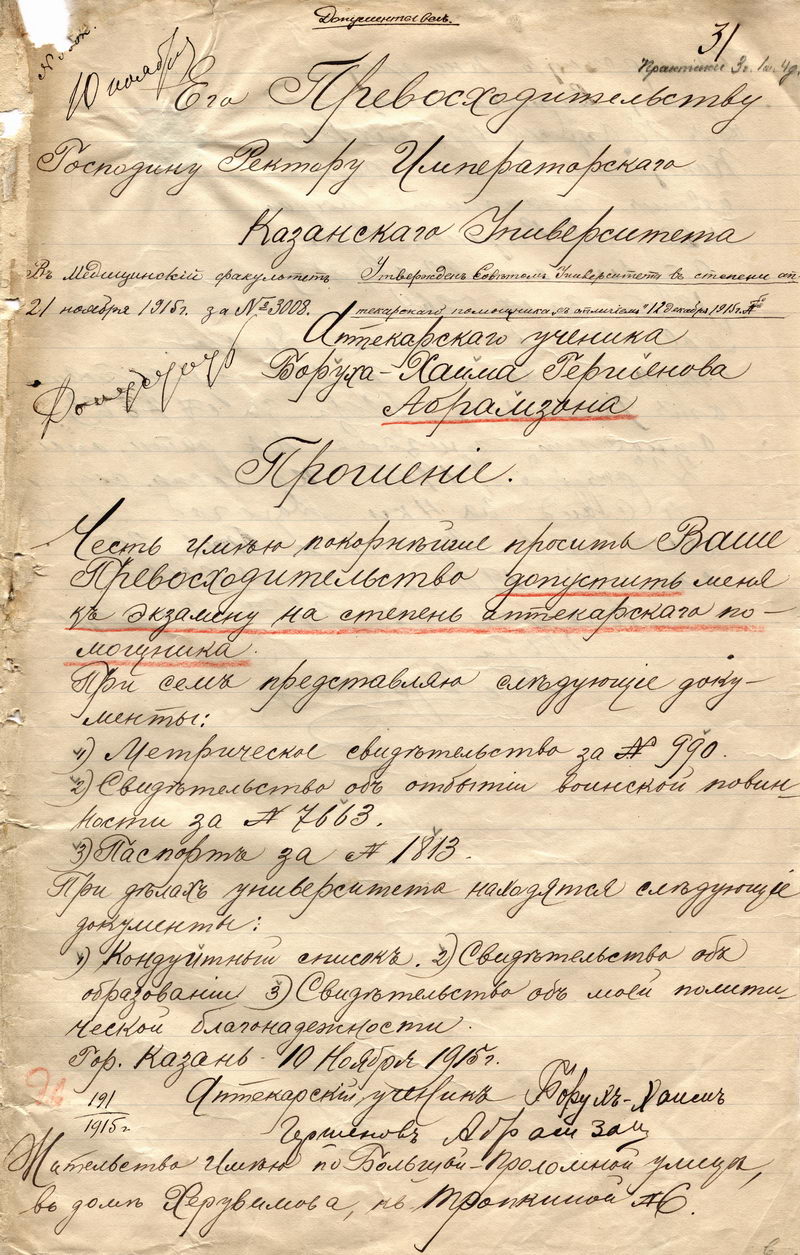 Документы воз.
31
Практики 3 г. 1 м. 4 д.
10 ноября
Его Превосходительству
Господину Ректору Императорскаго
Казанскаго Университета
Въ Медицинскій факультетъ
21 ноября 1915 г. за № 3008.
Утвержденъ Совѣтомъ Университета в степени ап-
текарскаго помощника „съ отличіемъ“ 12 декабря 1915 г.
Аптекарскаго ученика
Боруха-Хаима Гершенова
Абрамзона
Прошеніе.
Честь имѣю покорнѣйше просить Ваше
Превосходительство допустить меня
къ экзамену на степень аптекарскаго по-
мощника.
При семъ представляю слѣдующіе доку-
менты:
1) Метрическое свидѣтельство за № 990.
2) Свидѣтельство объ отбытіи воинской повин-
ности за № 7663.
3) Паспортъ за № 1813.
При дѣлахъ университета находятся слѣдующіе
документы:
1) Кондуитный списокъ. 2) Свидѣтельство объ
образованіи 3) Свидѣтельство объ моей полити-
ческой благонадежности.
Гор. Казань 10 Ноября 1915 г.
Аптекарскій ученикъ Борухъ-Хаимъ
Гершеновъ Абрамзон
191
1915 г
Жительство имѣю по Большой-Проломной улицѣ,
въ домѣ Херувимова, кв Тропкиной № 6.